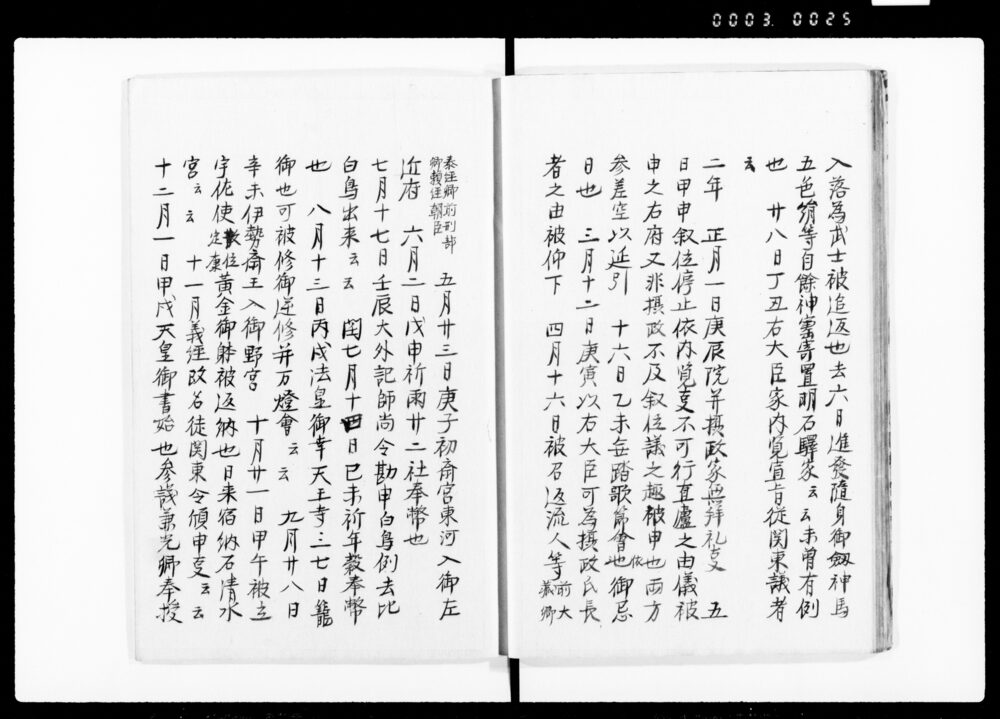 0003 0025
入落為武士被追返也去六日進發隨身御劔神馬
五色絹等自餘神寳寄置明石驛家云云未曽有例
也　廿八日丁丑右大臣家内覧宣旨従関東議者
云
二年　正月一日庚辰院并摂政家無拜礼支　五
日甲申叙位停止依内覧支不可行直廬之由儀被
申之右府又非摂政不及叙位議之趣被申也依両方
参差空以延引　十六日乙未無踏歌節會也御忌
日也　三月十二日庚寅以右大臣可為摂政氏長
者之由被仰下　四月十六日被召返流人等前大
蔵卿
泰経卿前刑部
卿頼経朝臣　五月廿三日庚子初斎宮東河入御左
近府　六月二日戊申祈雨廿二社奉幣也
七月十七日壬辰大外記師尚令勘申白鳥例去比
白鳥出来云云　閏七月十四日己未祈年穀奉幣
也　八月十三日丙戌法皇御幸天王寺三七日籠
御也可被修御逆修并万燈會云云　九月廿八日
辛未伊勢斎王入御野宮　十月廿一日甲午被立
宇佐使散位定康黄金御躰被返納也日来宿納石清水
宮云云　十一月義經改名従関東令傾申支云云
十二月一日甲戌天皇御書始也参議兼光卿奉授